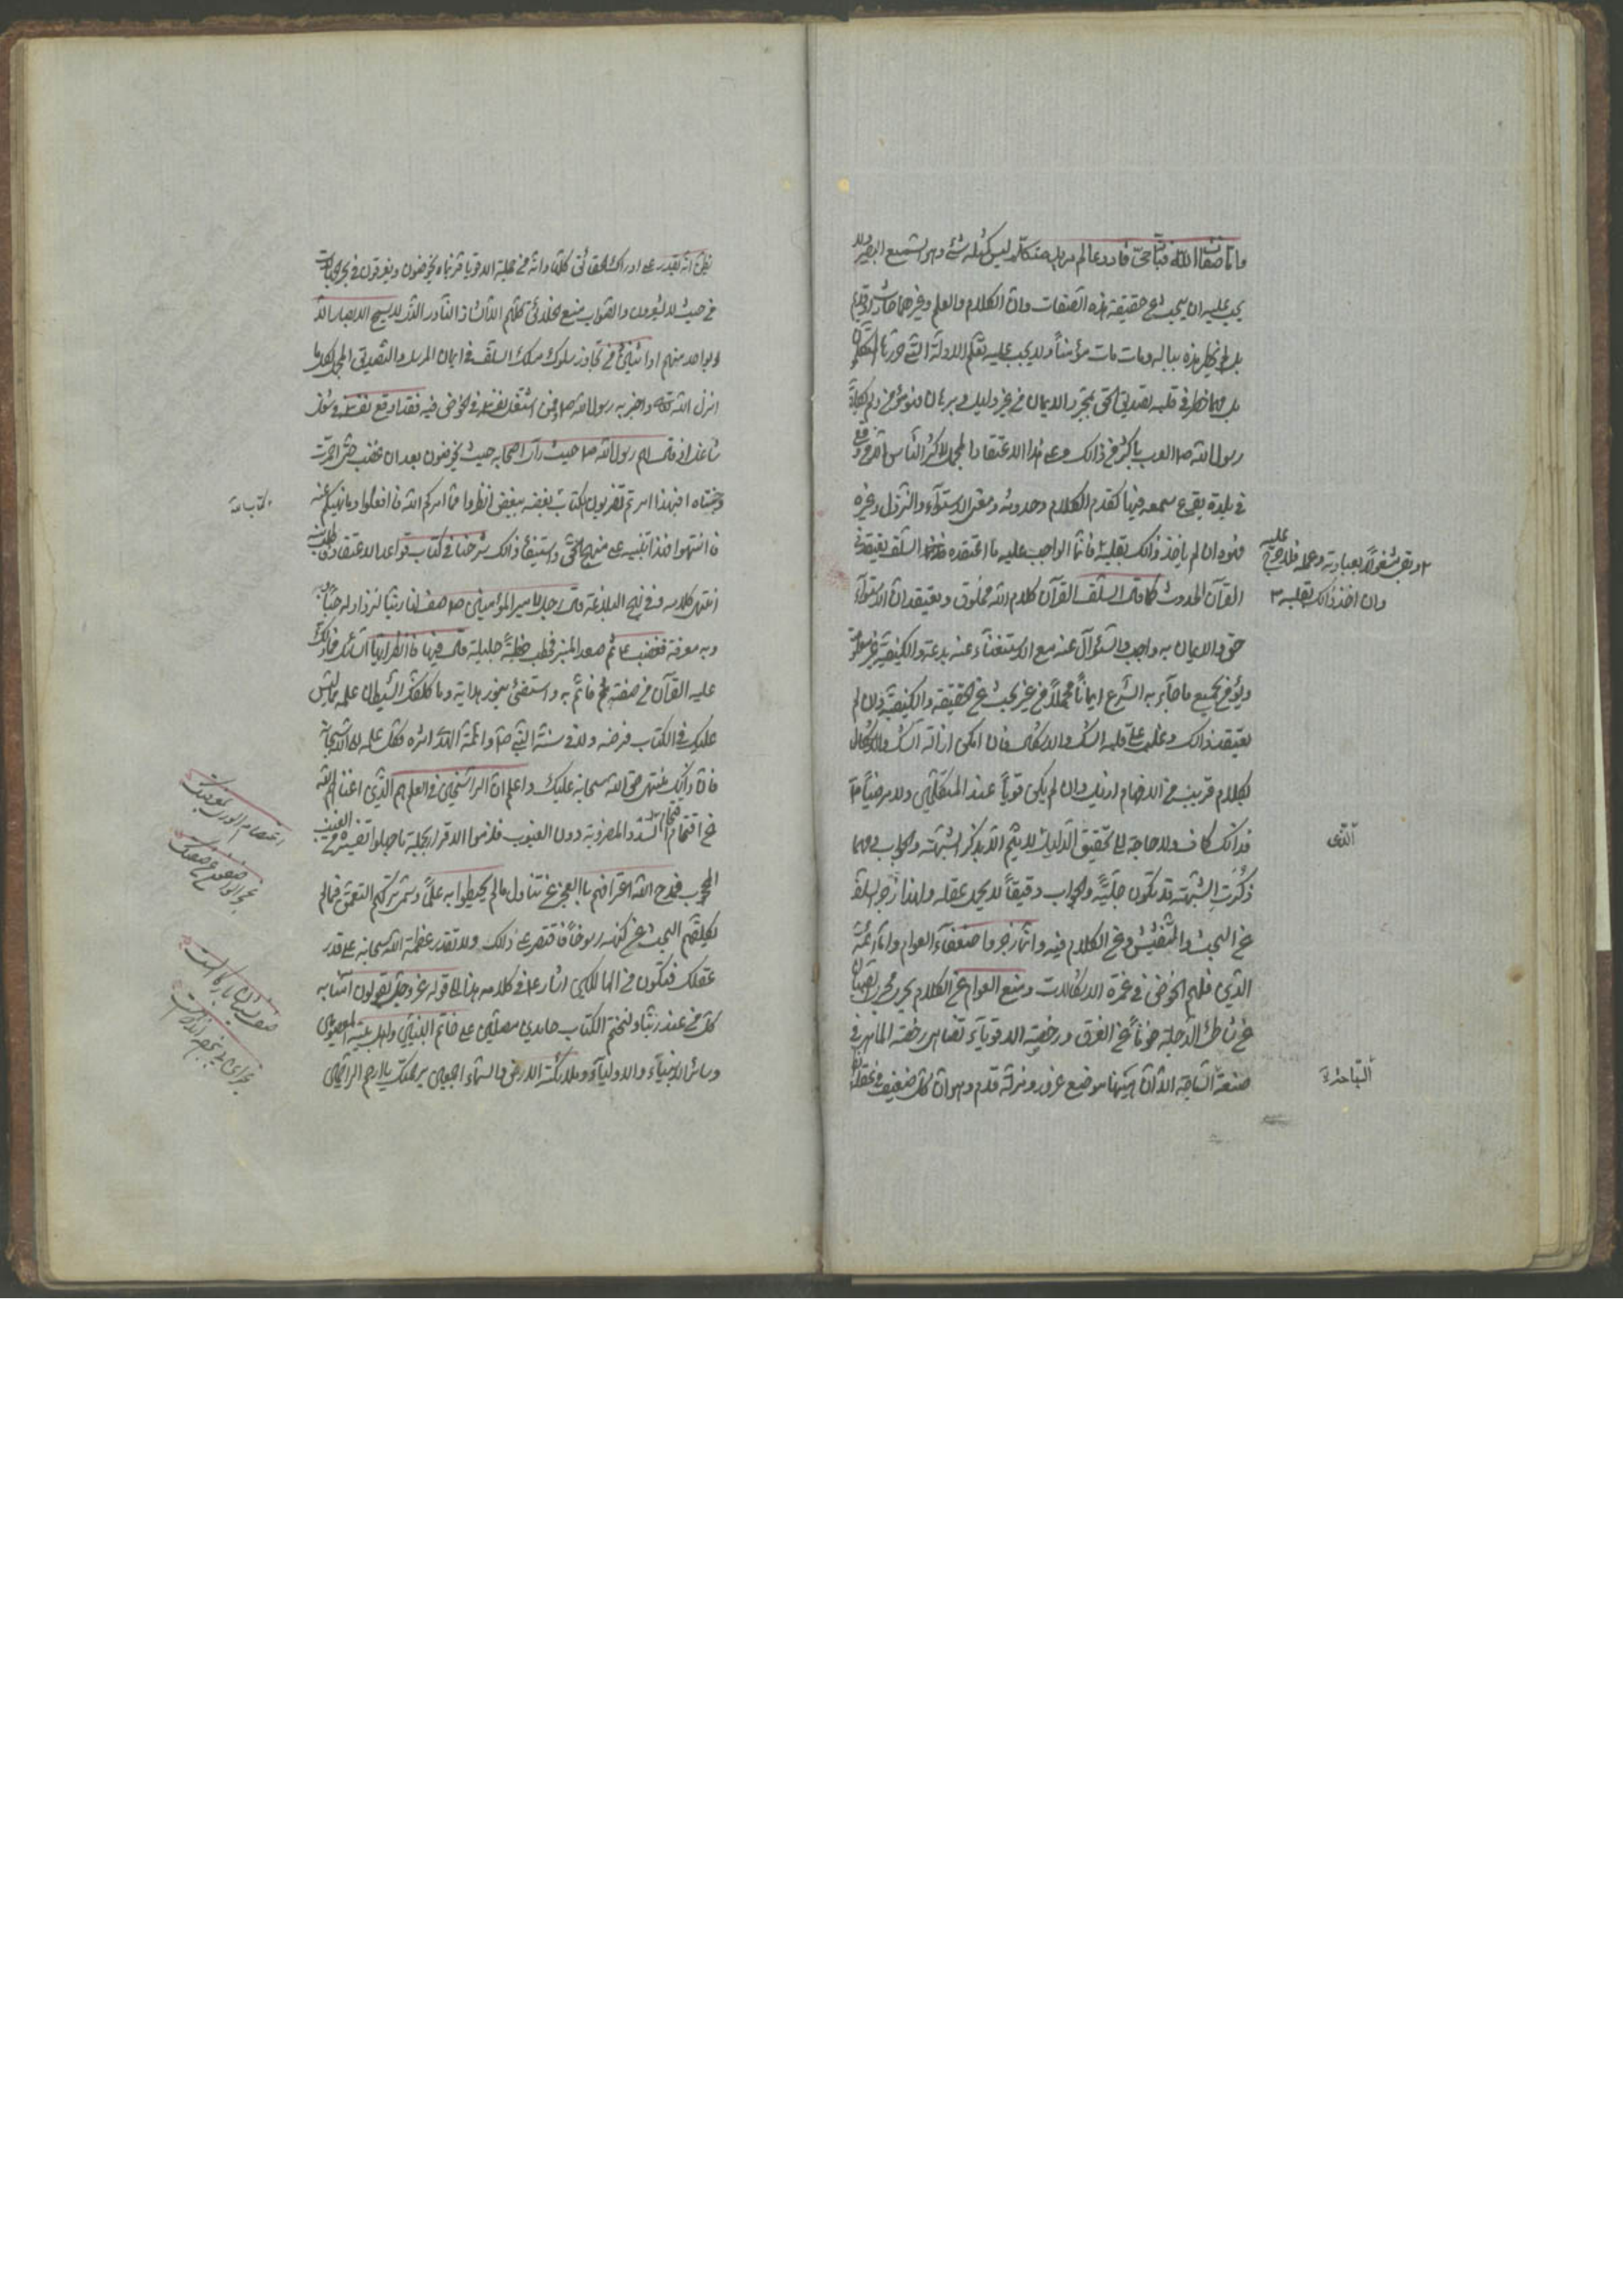 واما صفات الله فبانّه حيّ قادر عالم مريد متكلّم ليس كمثله شئ وهو السّميع البصير ولا
يجب عليه ان يبحث عن حقيقة هذه الصّفات وانّ الكلام والعلم وغيرهما حادث او قديم
بل لو لم يخطر هذه بباله ومات مات مؤمناً ولا يجب عليه تعلّم الادلّة الّتي حرّرها المتكلّمون
بل مهما خطر في قلبه تصديق الحقّ بمجرّد الايمان من غير دليل وبرهان فهو مؤمن ولم يكلّف
رسول الله ص العرب باكثر من ذالك وعلى هذا الاعتقاد المجمل اكثر النّاس الّا من وقع
في بلدة يقرع سمعه فيها كقدم الكلام وحدوثه ومعنى الاستواء والنّزول وغيره
فهو ان لم ياخذ ذالك بقلبه فانّما الواجب عليه ما اعتقده السّلف يعتقد في
٢ وبقي مشغولاً بعبادته وعمله فلا حرج عليه
وان اخذ ذالك بقلبه ٣
القرآن الحدوث كما قال السّلف القرآن كلام الله مخلوق ويعتقد انّ الاستواء
حقّ والايمان به واجب والسّؤال عنه مع الاستغناء عنه بدعة والكيفيّة غير معلومة
ويؤمن بجميع ما جاء به الشّرع ايماناً مجملاً من غير بحث عن الحقيقة والكيفيّة وان لم
يعتقد ذالك وغلب على قلبه الشّك والاشكال فان امكن ازالة الشّك والاشكال
بكلام قريب من الافهام ازيل وان لم يكن قويّاً عند المتكلّمين ولا مرضيّاً
فذالك كاف ولا حاجة الى تحقيق الدّليل لا يتمّ الّا بذكر الشّبهة والجواب ومهما
الّذى
ذكرت الشّبهة قد تكون جليّة والجواب دقيقاً لا يحمله عقله ولهذا زجر السّلف
عن البحث والتّفتيش وعن الكلام فيه وانّما زجروا ضعفاء العوام وامّا ائمّة
الدّين فلهم الخوض في غمرة الاشكالات ومنع العوام عن الكلام يجري مجرى منع الصّبيان
عن شاطئ الدّجلة خوفاً عن الغرق ورخصة الاقوياء تضاهي رخصة الماهر في
صنعة السّباحة الّا انّ هيهنا موضع غرور ومزلّة قدم وهو انّ كلّ ضعيف في عقله
السّباحة
يظنّ انّه يقدر على ادراك الحقائق كلّها وانّه من جملة الاقوياء فربما يخوضون ويغرقون في بحر الجهالات
من حيث لا يشعرون والصّواب منع الخلائق كلّهم الّا الشّاذّ النّادر الّذى لا يسمح الاعصار الّا
بواحد منهم او اثنين من تجاوز سلوك مسلك السّلف في ايمان المرسل والتّصديق المجمل بكلّ ما
انزل الله تعالى واخبر به رسول الله ص فمن اشتغل نفسه في الخوض فيه فقد اوقع نفسه في شغل
شاغل اذ قال رسول الله ص حيث رأى اصحابه حيث يخوضون بعد ان غضب حتّى احمرّت
وجنتاه افبهذا امرتم تضربون كتاب بعضه ببعض انظروا فما امركم الله فافعلوا وما نهيكم عنه
كتاب الله
فانتهوا فهذا تنبيه على منهج الحقّ واستيفاء ذالك شرحناه في كتاب قواعد الاعتقاد فاطلب منه
انتهى كلامه وفي نهج البلاغة قال رجل لامير المؤمنين ص صف لنا ربّنا لنزداد له حبّاً
وبه معرفة فغضب ع ثم صعد المنبر فخطب خطبة جليلة قال فيها فانظر ايّها السّائل فما دلّك
عليه القرآن من صفته فائتمّ به واستضئ بنور هدايته وما كلّفك الشّيطان علمه ممّا ليس
عليك في الكتاب فرضه ولا في سنّة النّبي ص وائمّة الهدى اثره فكل علمه الى الله سبحانه
فانّ ذالك منتهى حقّ الله سبحانه عليك واعلم انّ الرّاسخين في العلم هم الّذين اغناهم الله
عن اقتحام السّدد المضروبة دون الغيوب فلزموا الاقرار بجملة ما جهلوا تفسيره من الغيب
المحجوب فمدح الله اعترافهم بالعجز عن تناول ما لم يحيطوا به علماً وسمّى تركهم التعمّق فيما لم
يكلّفهم البحث عن كنهه رسوخاً فاقتصر على ذلك ولا تقدر عظمة الله سبحانه على قدر
عقلك فتكون من الهالكين اشار ع في كلامه هذا الى قوله عزّ وجلّ يقولون آمنّا به
كلّ من عند ربّنا ولنختم الكتاب حامدين مصلّين على خاتم النّبيّين واهل بيته المعصومين
وسائر الانبياء والاولياء وملائكة الارض والسّماء اجمعين برحمتك يا ارحم الرّاحمين
اعتصام الورى بمغفرتك
عجز الواصفون عن صفتك